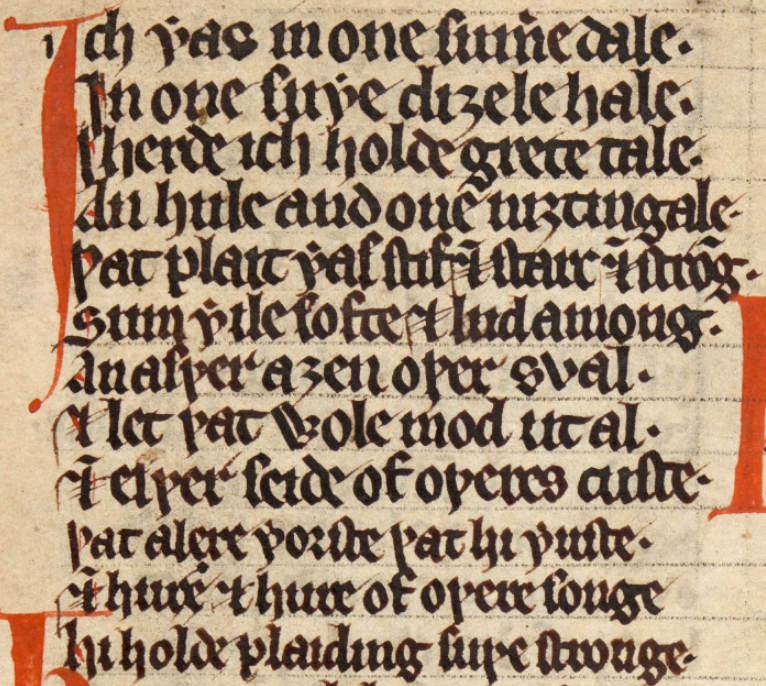 Ich ƿas in one sum̄e dale.
In one suƿe diȝele hale.
Iherde ich holde grete tale.
An hule and one niȝtingale.
Þat plait ƿas stif ⁊ starc ⁊ strōg.
Sum ƿile softe ⁊ lud among.
An aiþer aȝen oþer sval.
⁊ let þat wole mod ut al.
⁊ eiþer seide of oþeres custe.
Þat alere ƿorste þat hi ƿuste.
⁊ hure ⁊ hure of oþere songe
Hi holde plaiding suþe stronge.